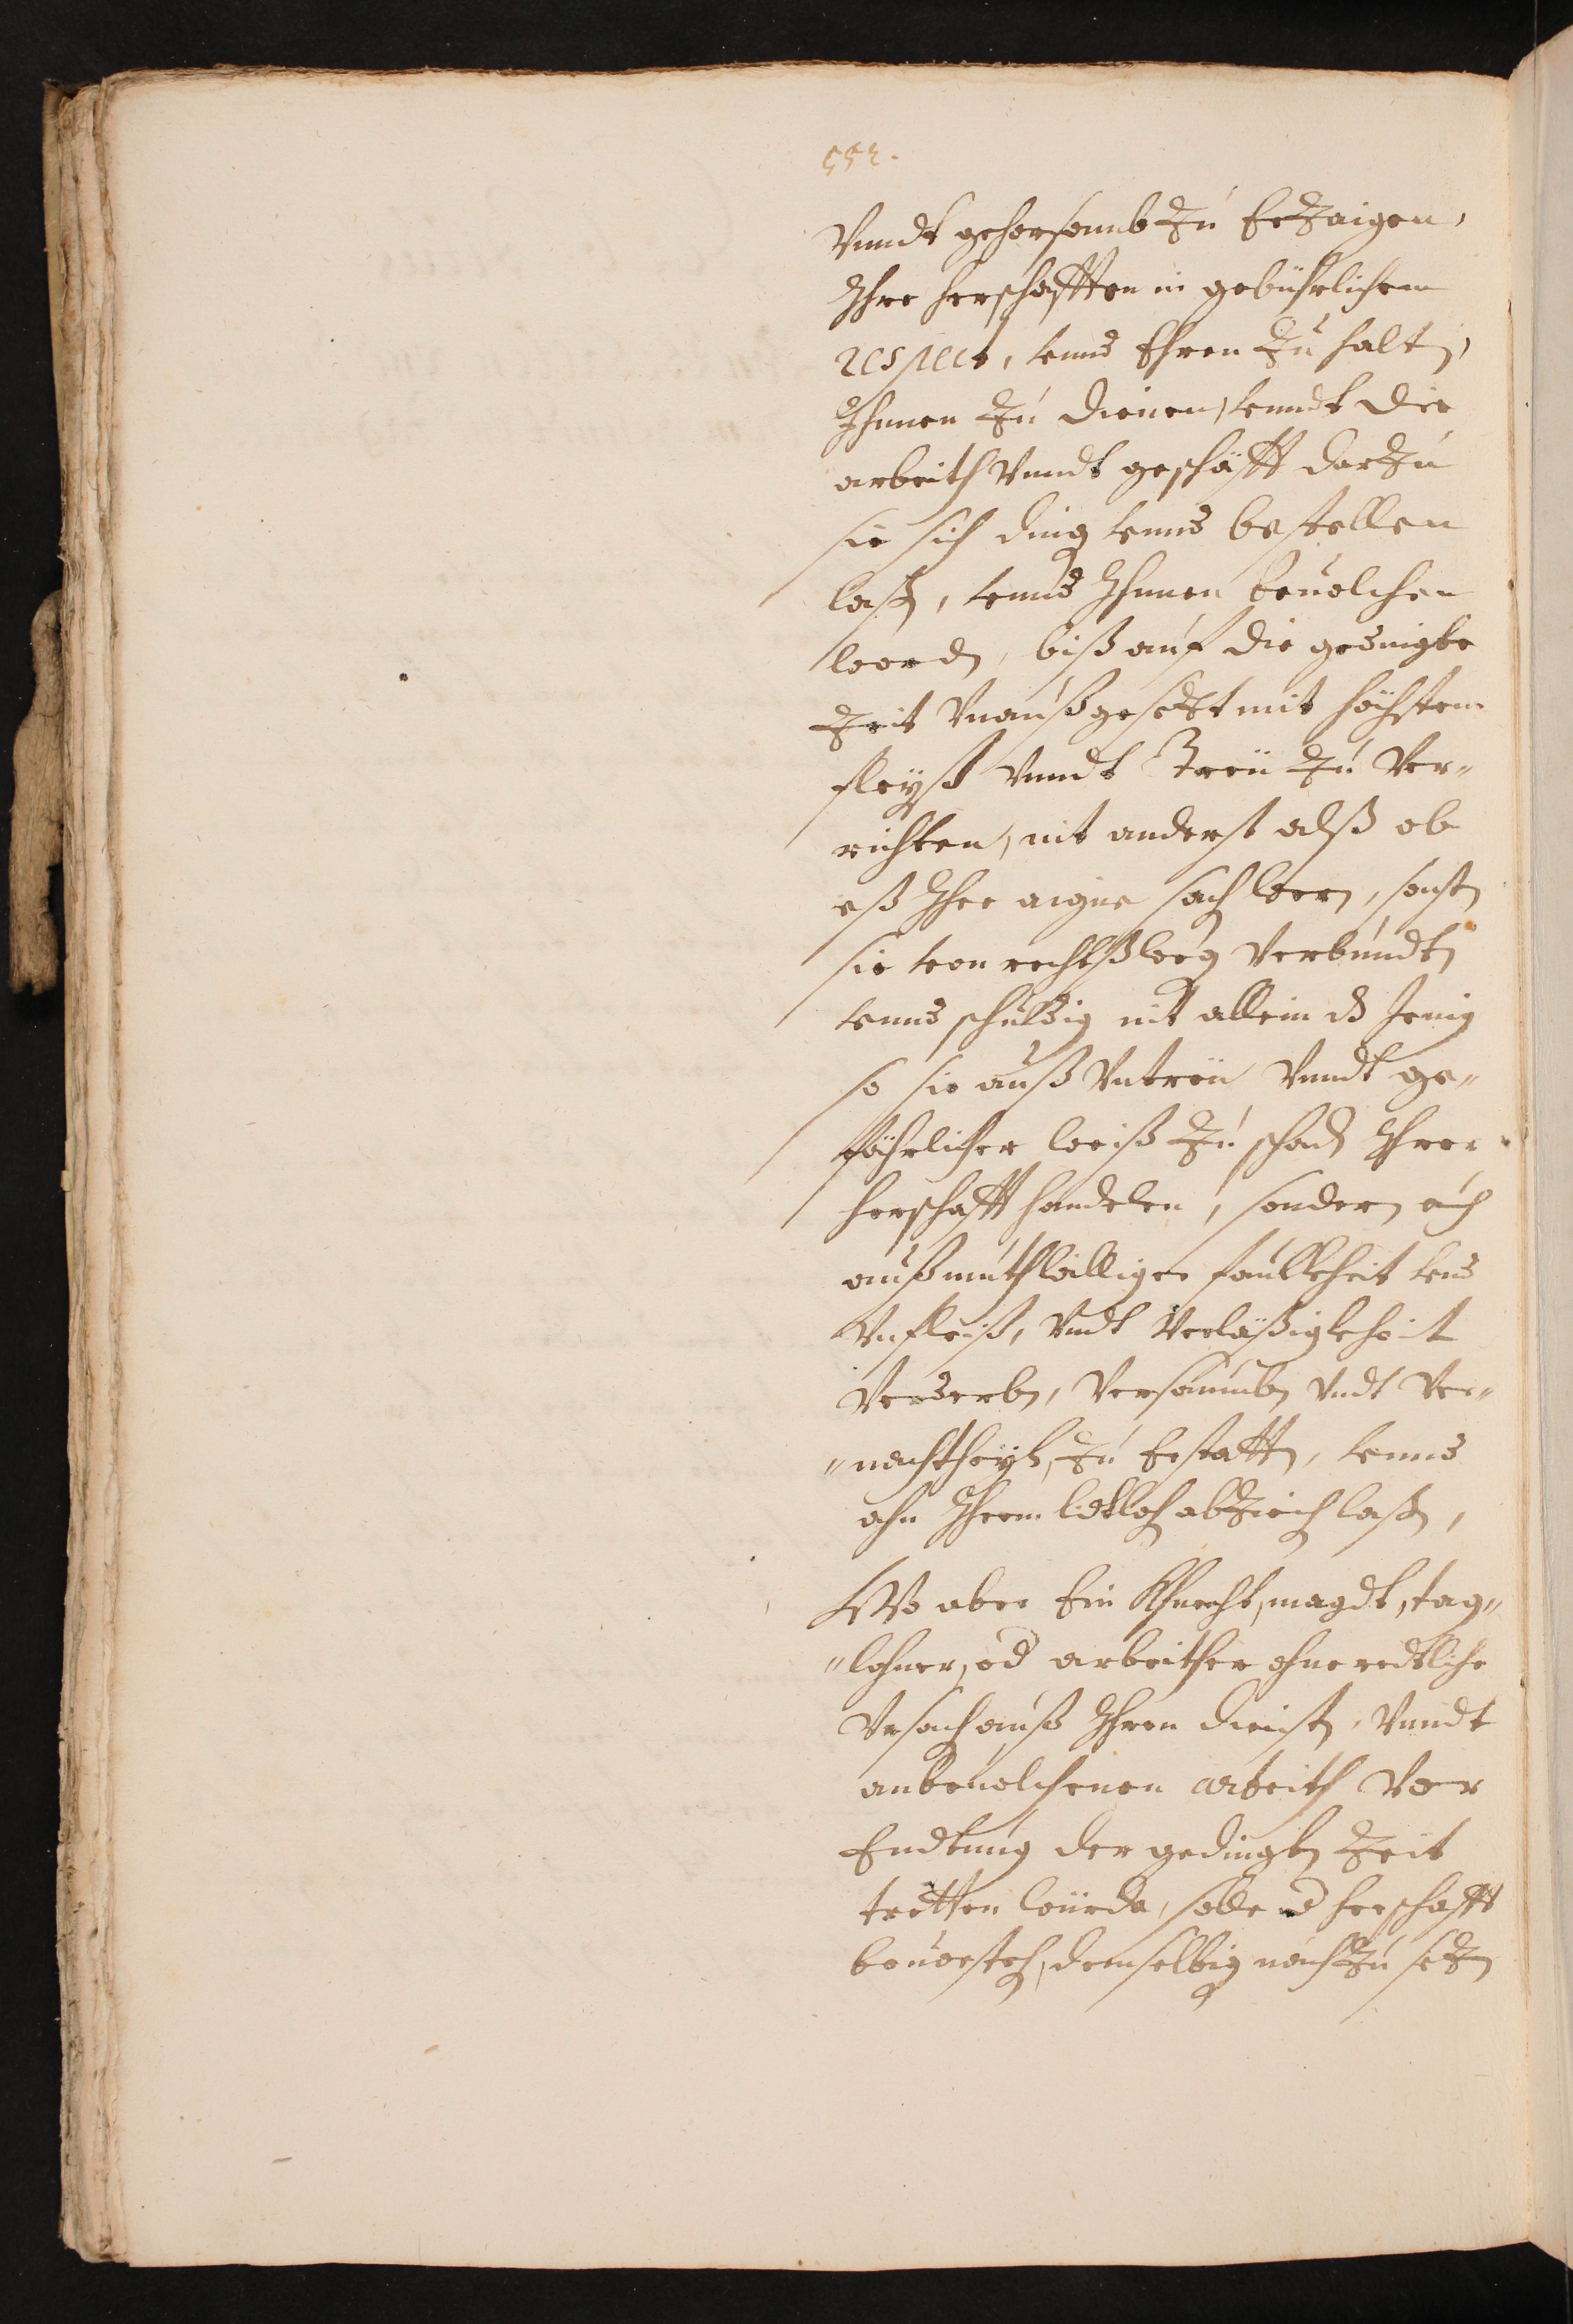 552.
Vnndt gehorsamb Zu ErZaigen,
Ihre herschafften in gebührlichem
respect, vnnd Ehren Zu halten,
Ihnnen Zu dienen, vnndt die
arbeith Vnndt geschäfft darZu
sie sich ding vnnd bestellen
laßen, vnnd Ihnnen beuolchen
worden, biß auf die gedingte
Zeit Vnaußgesetzt mit höchstem
fleyß Vnndt Treü Zu Ver-
richten, nit anderst alß ob
eß Ihre aigne sach wern, sonsten
sie von rechtßweg Verbundten
vnnd schuldig nit allein dß Jenig
so sie auß Vntreü Vnndt ge-
fährlicher weiß Zu schaden Ihrer
herschafft handelen, sondern auch
auß muthwilliger faulkheit vnd
Vnfleiß, Vndt Verläßigkheit
Verderben, Versaumben Vndt Ver-
nachtheylen, Zu Erstatten, vnnd
ahn Ihrem lidtlohn abZiechen laßen,
Wo aber Ein Khnecht, magdt, tag-
lohner, od arbeither ohne redtliche
Vrsach auß Ihren diensten, Vnndt
anbeuolchenen arbeith Vor
Endtung der gedingten Zeit
tretten würde, solle d herschafft
beuorstehen, demselbigen nachZusetzen